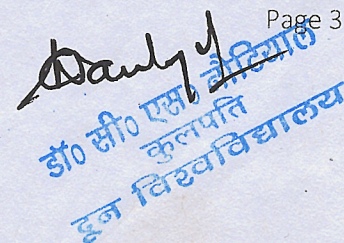 Page 3
डॉ० सी० एस० नौटियाल
कुलपति
दून विश्वविद्यालय